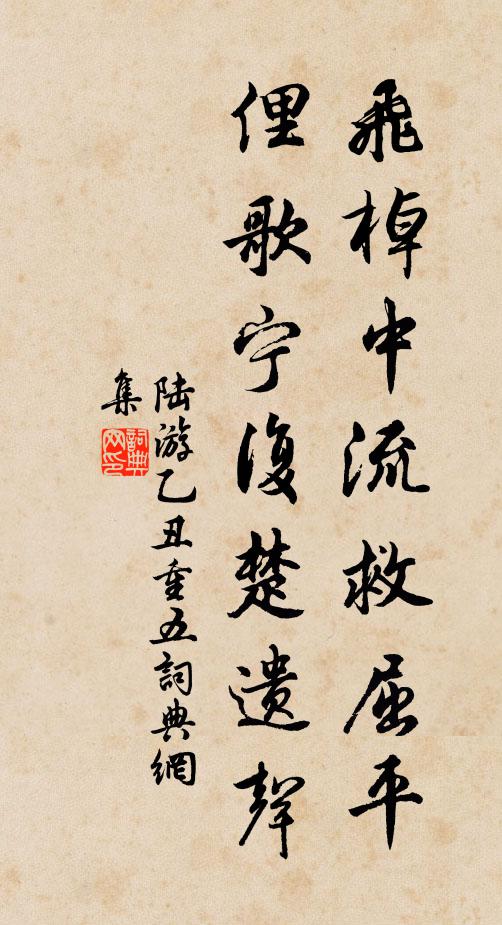 飛棹中流救屈平
俚歌宁復楚遺聲
陆游乙丑重五詞典網
集
詞典
网印